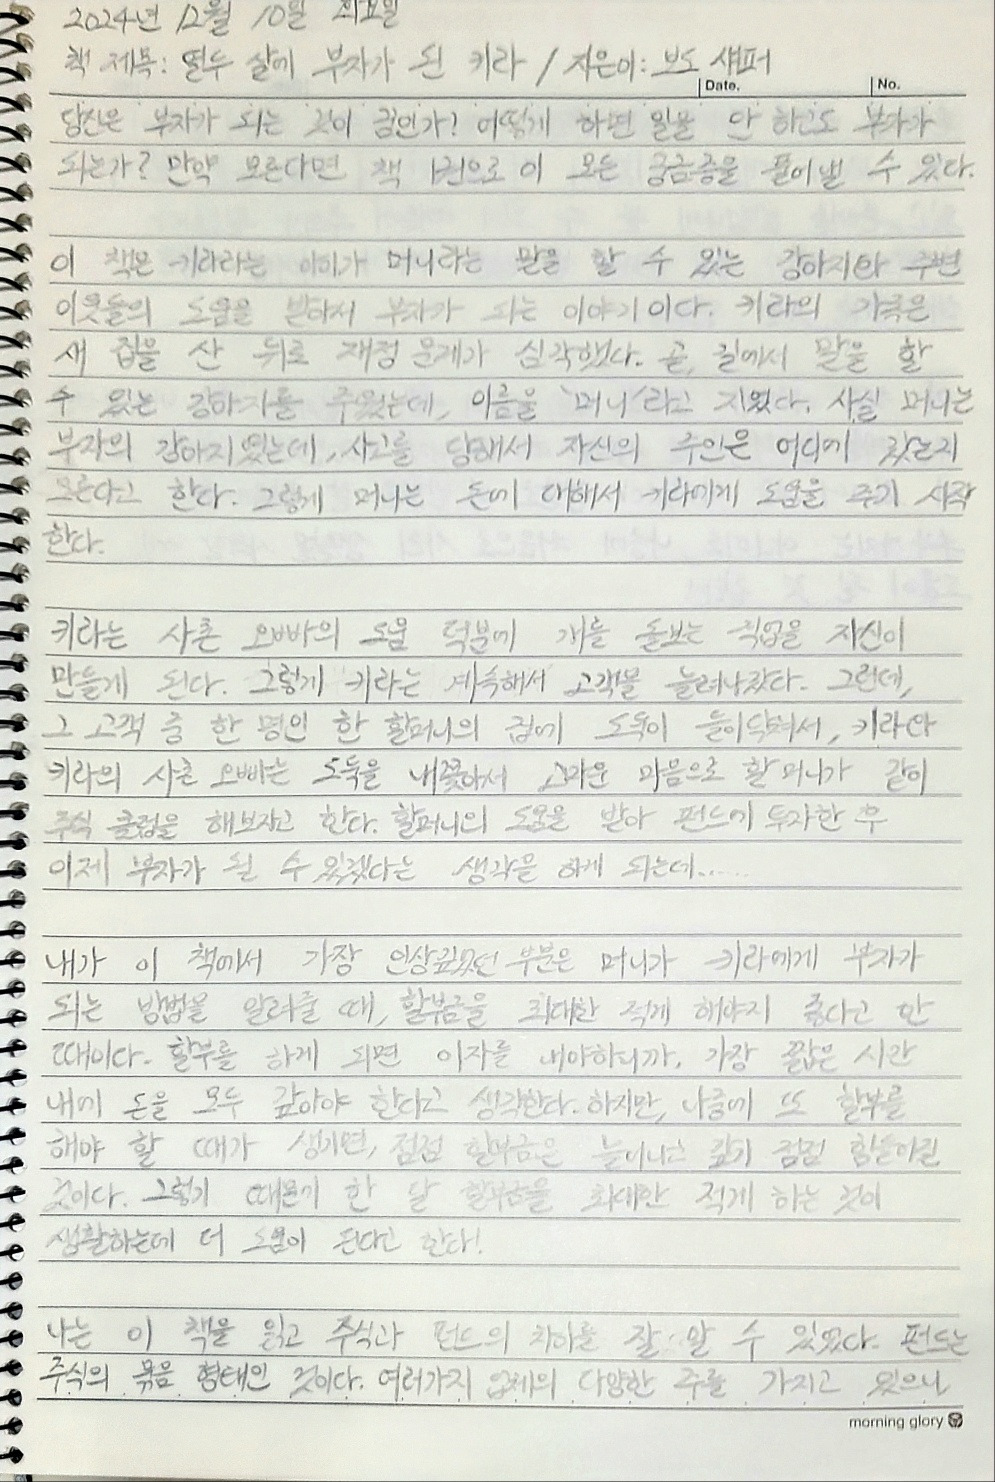 2024년 12월 10일 화요일
책 제목: 열두 살에 부자가 된 키라 / 지은이: 보도 섀퍼
Date.
No.
당신은 부자가 되는 것이 꿈인가? 어떻게 하면 일을 안 하고도 부자가
되는가? 만약 모른다면 책 1권으로 이 모든 궁금증을 풀어낼 수 있다.
이 책은 키라라는 아이가 머니라는 말을 할 수 있는 강아지와 주변
이웃들의 도움을 받아서 부자가 되는 이야기이다. 키라의 가족은
새 집을 산 뒤로 재정 문제가 심각했다. 곧, 길에서 말을 할
수 있는 강아지를 주웠는데, 이름을 '머니'라고 지었다. 사실 머니는
부자의 강아지였는데, 사고를 당해서 자신의 주인은 어디에 갔는지
모른다고 한다. 그렇게 머니는 돈에 대해서 키라에게 도움을 주기 시작
한다.
키라는 사촌 오빠의 도움 덕분에 개를 돌보는 직업을 자신이
만들게 된다. 그렇게 키라는 계속해서 고객을 늘려나갔다. 그런데,
그 고객 중 한 명인 한 할머니의 집에 도둑이 들이닥쳐서, 키라와
키라의 사촌 오빠는 도둑을 내쫓아서 고마운 마음으로 할머니가 같이
주식 클럽을 해보자고 한다. 할머니의 도움을 받아 펀드에 투자한 후
이제 부자가 될 수 있겠다는 생각을 하게 되는데......
내가 이 책에서 가장 인상깊었던 부분은 머니가 키라에게 부자가
되는 방법을 알려줄 때, 할부금을 최대한 적게 해야지 좋다고 한
때이다. 할부를 하게 되면 이자를 내야하니까, 가장 짧은 시간
내에 돈을 모두 갚아야 한다고 생각한다. 하지만, 나중에 또 할부를
해야 할 때가 생기면, 점점 할부금은 늘어나고 갚기 점점 힘들어질
것이다. 그렇기 때문에 한 달 할부금을 최대한 적게 하는 것이
생활하는데 더 도움이 된다고 한다!
나는 이 책을 읽고 주식과 펀드의 차이를 잘 알 수 있었다. 펀드는
주식의 묶음 형태인 것이다. 여러가지 업체의 다양한 주를 가지고 있으니
morning glory